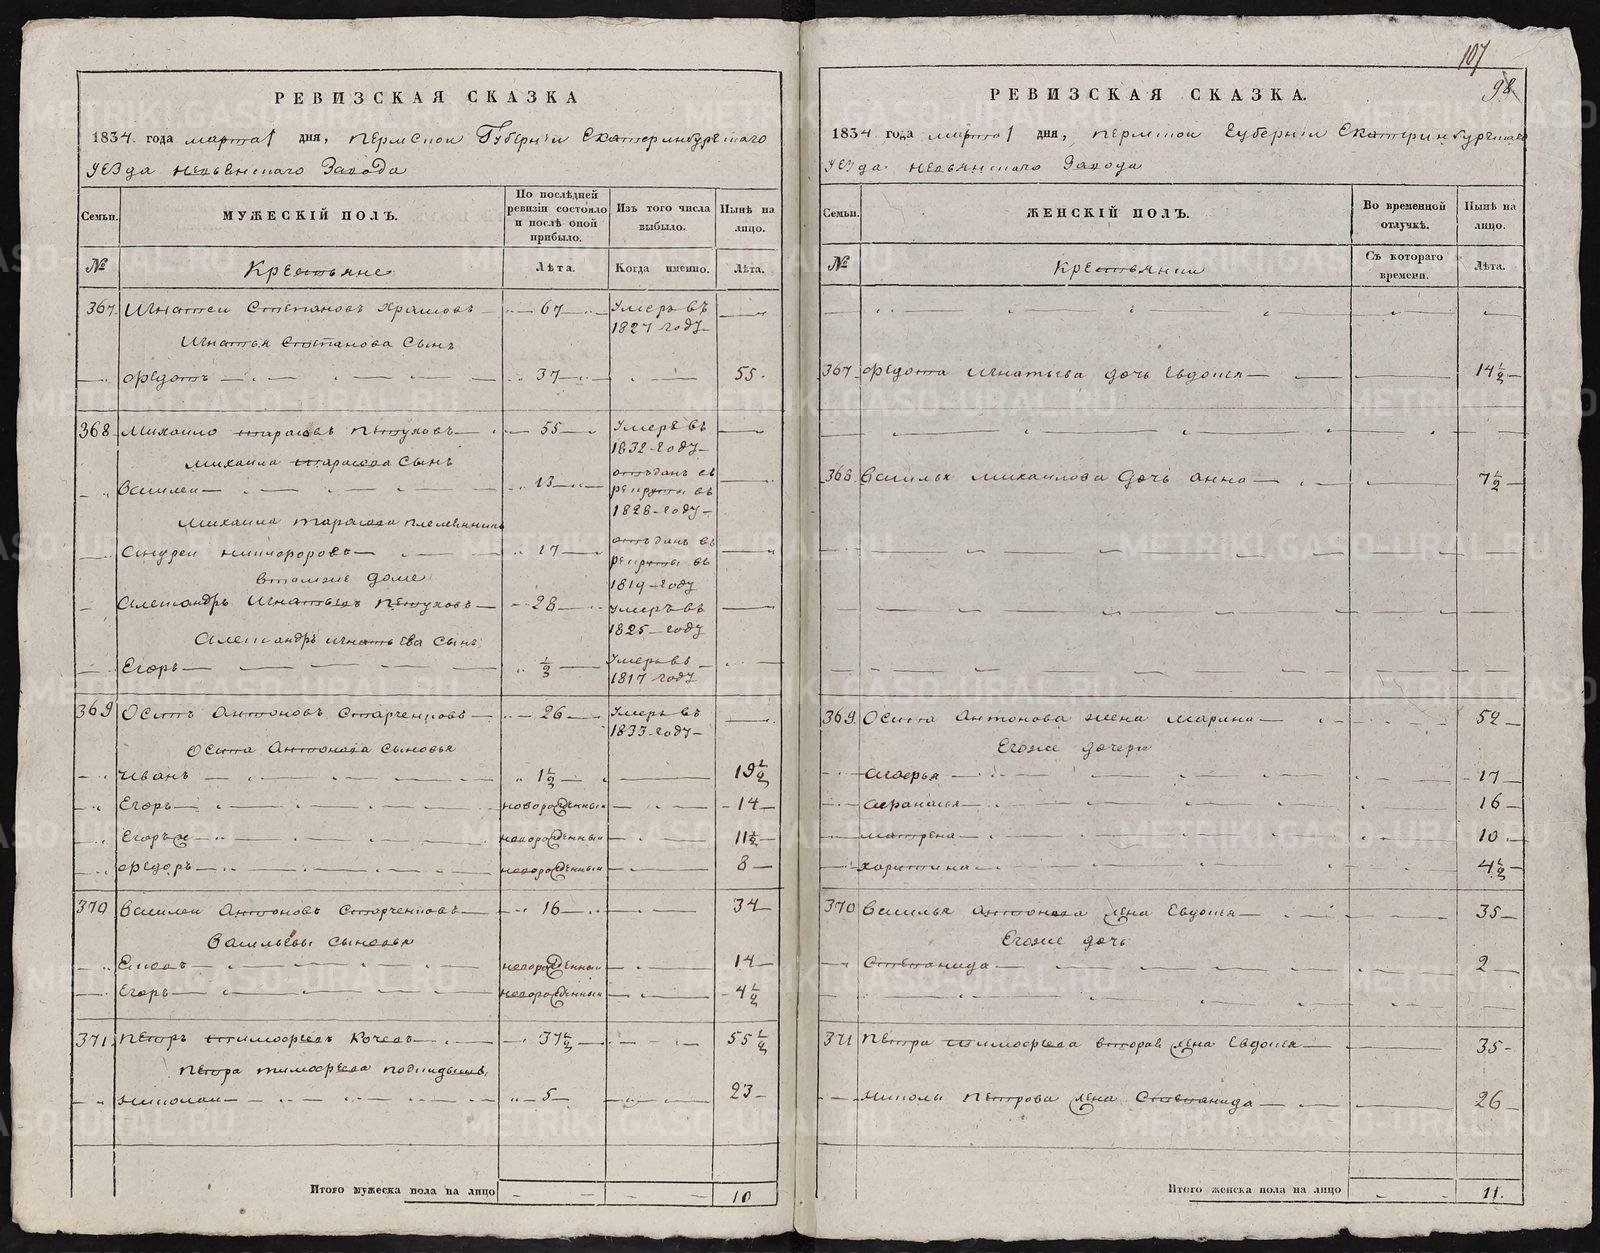 107
98
РЕВИЗСКАЯ СКАЗКА
1834 года марта 1 дня, Пермской Губернии Екатеринбургскаго
уезда Невьянскаго Завода
Семьи.
МУЖЕСКІЙ ПОЛЪ.
По послѣдней ревизіи состояло и послѣ оной прибыло.
Изъ того числа выбыло.
Нынѣ на лицо.
№
Крестьяне
Лѣта.
Когда именно.
Лѣта.
367 Игнатеи Степановъ Храмовъ 67 Умеръ въ 1827 году
Игнатья Степанова сынъ
Федотъ 37 55
368 Михаило Тарасовъ Петуховъ 55 Умеръ въ 1832 году
Михаила Тарасова сынъ
Василеи 13 отъданъ въ рекруты въ 1828 году
Михаила Тарасова племянникъ
Андреи Никифоровъ 17 отъданъ въ рекруты въ 1819 году
втомже доме
Александръ Игнатьевъ Петуховъ 28 Умеръ въ 1825 году
Александръ Игнатьева сынъ
Егоръ ½ Умеръ въ 1817 году
369 Осипъ Антоновъ Старченковъ 26 Умеръ въ 1833 году
Осипа Антонова сыновья
Иванъ 1½ 19½
Егоръ новорожденныи 14
Егоръ же новорожденныи 11½
Федоръ новорожденныи 8
370 Василеи Антоновъ Старченковъ 16 34
Васильевы сыновья
новорожденныи 14
Егоръ новорожденныи 4½
371 Петръ Тимофеевъ Кочевъ 37½ 55½
Петра Тимофеева подкидышъ
Николаи 5 23
Итого мужеска пола на лицо 10
РЕВИЗСКАЯ СКАЗКА.
1834 года марта 1 дня, Пермскои Губерніи Екатеринбургскаго
уезда Невьянскаго Завода
Семьи.
ЖЕНСКІЙ ПОЛЪ.
Во временной отлучкѣ.
Нынѣ на лицо.
№
Крестьянки
Съ котораго времени.
Лѣта.
367 Федота Игнатьева дочь Евдокея 14½
368 Василья Михаилова дочь Анна 7½
369 Осипа Антонова жена Марина 52
Егоже дочери
17
Афанасья 16
Матрена 10
Харитина 4½
370 Василья Антонова жена Евдокея 35
Егоже дочь
Степанида 2
371 Петра Тимофеева вторая жена Евдокея 35
Николы Петрова жена Степанида 26
Итого женска пола на лицо 11.
METRIKI.GASO-URAL.RU